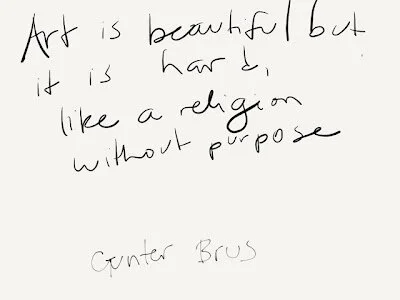 Art is beautiful but
it is hard,
like a religion
without purpose
Gunter Brus